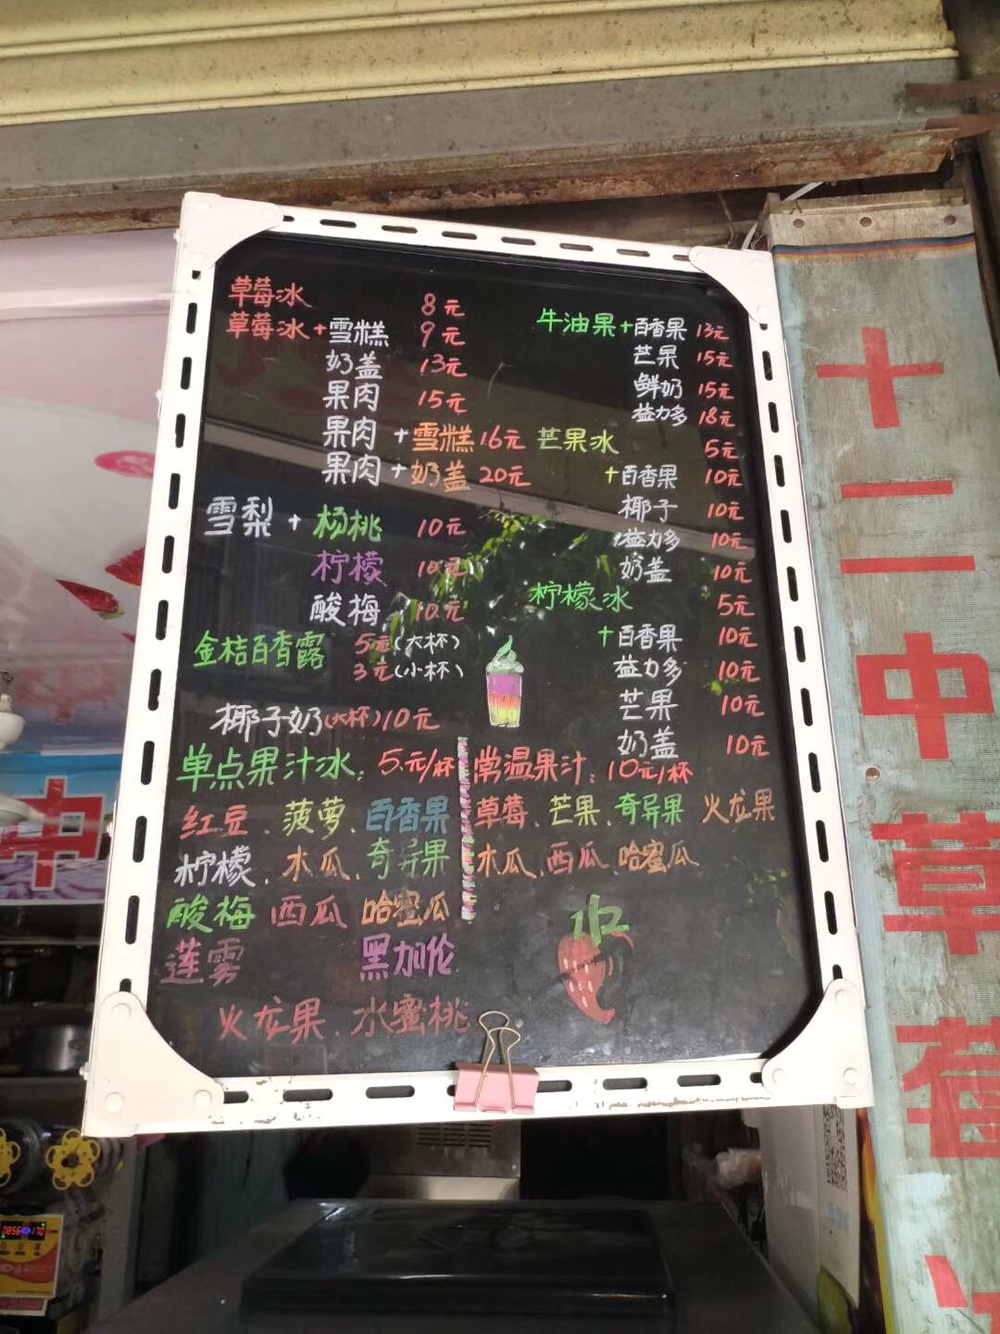 草莓冰 8元
草莓冰+雪糕 9元
奶盖 13元
果肉 15元
果肉+雪糕 16元
果肉+奶盖 20元
雪梨+杨桃 10元
柠檬 10元
酸梅 10元
金桔百香露 5元(大杯)
3元(小杯)
椰子奶(大杯)10元
牛油果+百香果 13元
芒果 15元
鲜奶 15元
益力多 18元
芒果冰 5元
+百香果 10元
椰子 10元
益力多 10元
奶盖 10元
柠檬冰 5元
+百香果 10元
益力多 10元
芒果 10元
奶盖 10元
单点果汁冰: 5元/杯
红豆、菠萝、百香果
柠檬、木瓜、奇异果
酸梅 西瓜 哈蜜瓜
莲雾 黑加伦
火龙果、水蜜桃
常温果汁: 10元/杯
草莓、芒果、奇异果 火龙果
木瓜、西瓜、哈蜜瓜
十二中草莓
中